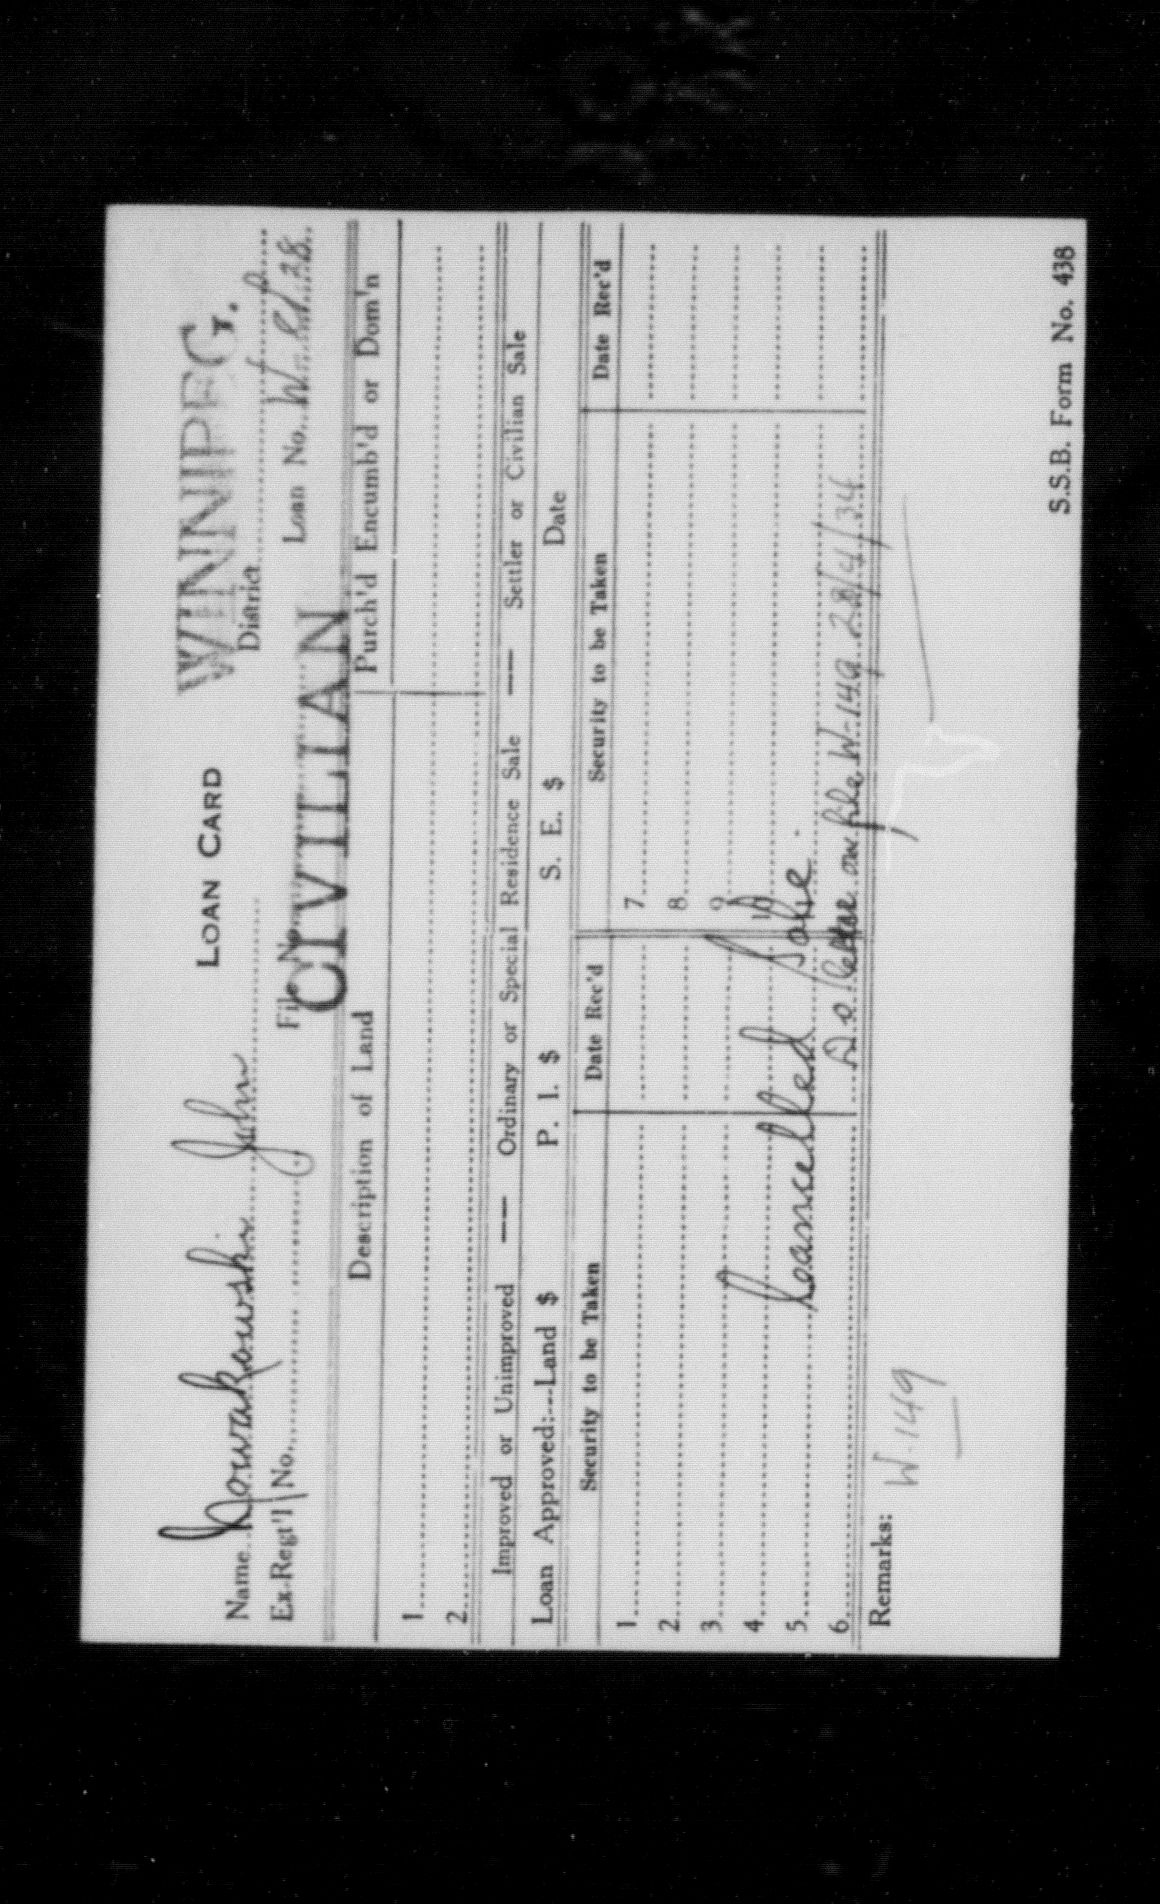 LOAN CARD
WINNIPEG.
Name Nowakowski John
District
Ex-Regt'l No.
File No.
CIVILIAN
Loan No. W
Description of Land
Purch'd Encumb'd or Dom'n
1
2
Improved or Unimproved — Ordinary or Special Residence Sale — Settler or Civilian Sale
Loan Approved:--Land $ P. I. $ S. E. $ Date
Security to be Taken Date Rec'd Security to be Taken Date Rec'd
1 7
2 8
3 9
4 10
5 Cancelled Sale.
6 letter on file W-149 28/4/34
Remarks: W-149
S.S.B. Form No. 438